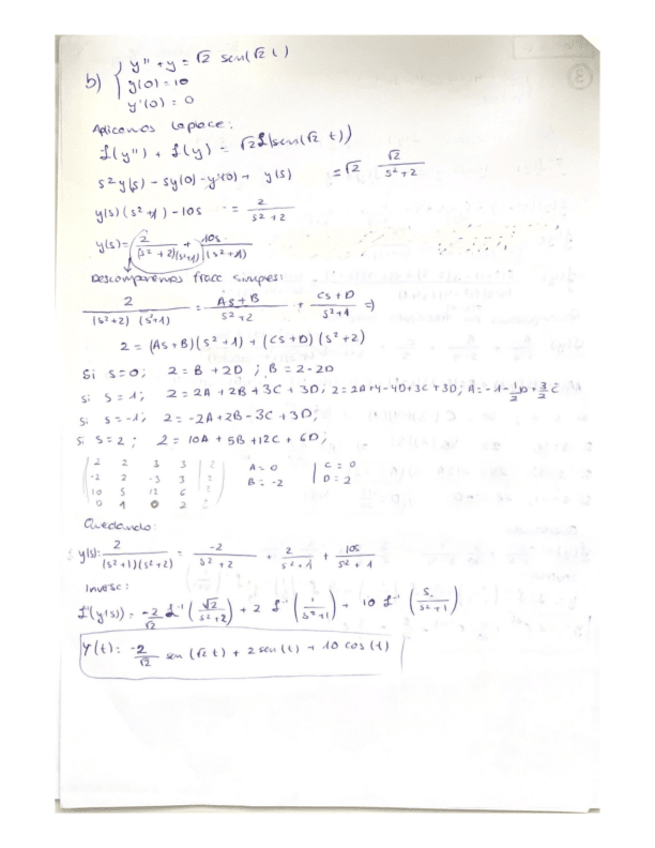 b) { y'' + y = √2 sen(√2 t)
y(0) = 10
y'(0) = 0
Aplicamos Laplace:
ℒ(y'') + ℒ(y) = √2 ℒ(sen(√2 t))
s²y(s) - sy(0) - y'(0) + y(s) = √2 √2/(s²+2)
y(s)(s²+1) - 10s = 2/(s²+2)
y(s) = 2/((s²+2)(s²+1)) + 10s/(s²+1)
Descomponemos fracc simples:
2/((s²+2)(s²+1)) = (As+B)/(s²+2) + (Cs+D)/(s²+1) =>
2 = (As+B)(s²+1) + (Cs+D)(s²+2)
Si s=0; 2 = B + 2D ; B = 2-2D
Si s=1; 2 = 2A + 2B + 3C + 3D; 2 = 2A+4-4D+3C+3D; A=-1-
Si s=-1; 2 = -2A+2B-3C+3D;
Si s=2; 2 = 10A + 5B + 12C + 6D;
2 2 3 3 | 2 A = 0 | C = 0
-2 2 -3 3 | 2 B = -2 | D = 2
10 5 12 6 | 2
0 1 0 2
Quedando:
y(s) = 2/((s²+1)(s²+2)) = -2/(s²+2) + 2/(s²+1) + 10s/(s²+1)
Inverse:
ℒ(y(s)) = -2/√2 ℒ⁻¹(√2/(s²+2)) + 2 ℒ⁻¹(1/(s²+1)) + 10 ℒ⁻¹(s/(s²+1))
Y(t) = -2/√2 sen(√2 t) + 2 sen(t) + 10 cos(t)